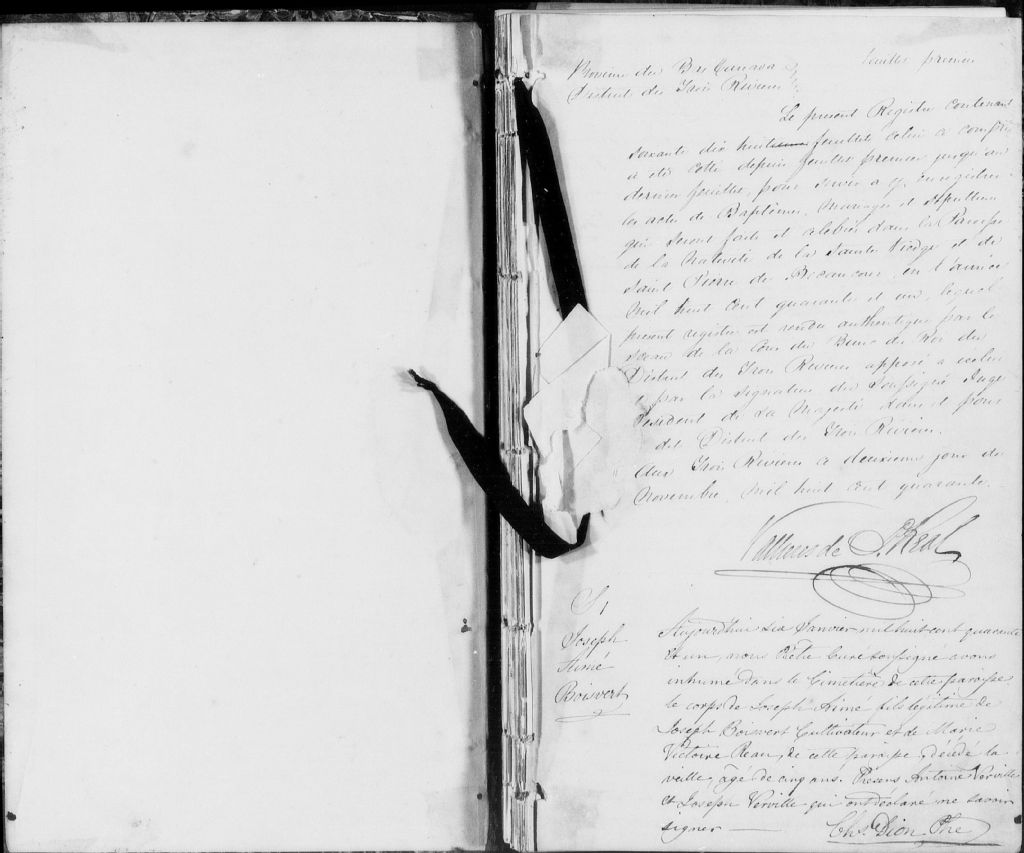 feuillet premier
Province du Bas Canada
District des Trois Rivieres
Le present Registre contenant
soixante dix huit feuillets celui a compris
a été cotté depuis feuillet premier jusqu'au
dernier feuillet, pour servir a y enregistrer
les actes de Baptêmes, Mariages et Sepultures
qui seront faits et celebrés dans la Paroisse
de la Nativité de la Sainte Vierge et de
Saint Pierre de Becancour, en l'année
mil huit cent quarante et un, lequel
present registre est rendu authentique par le
sceau de la Cour du Banc du Roi du
District des Trois Rivieres apposé a icelui
& par la signature du Soussigné Juge
Resident de Sa Majesté dans et pour
dit District des Trois Rivieres.
Aux Trois Rivieres ce deuxieme jour de
Novembre, mil huit cent quarante.
Vallieres de St. Real
S 1
Joseph
Aimé
Boisvert
Aujourdhui six Janvier mil huit cent quarante
et un, nous Prêtre Curé soussigné avons
inhumé dans le Cimetiere de cette paroisse
le corps de Joseph Aimé fils légitime de
Joseph Boisvert Cultivateur et de Marie
Victoire Reau, de cette paroisse, décédé la
veille, âgé de cinq ans. Présens Antoine Verville
et Joseph Verville qui ont déclaré ne savoir
signer
Chs. Dion Ptre